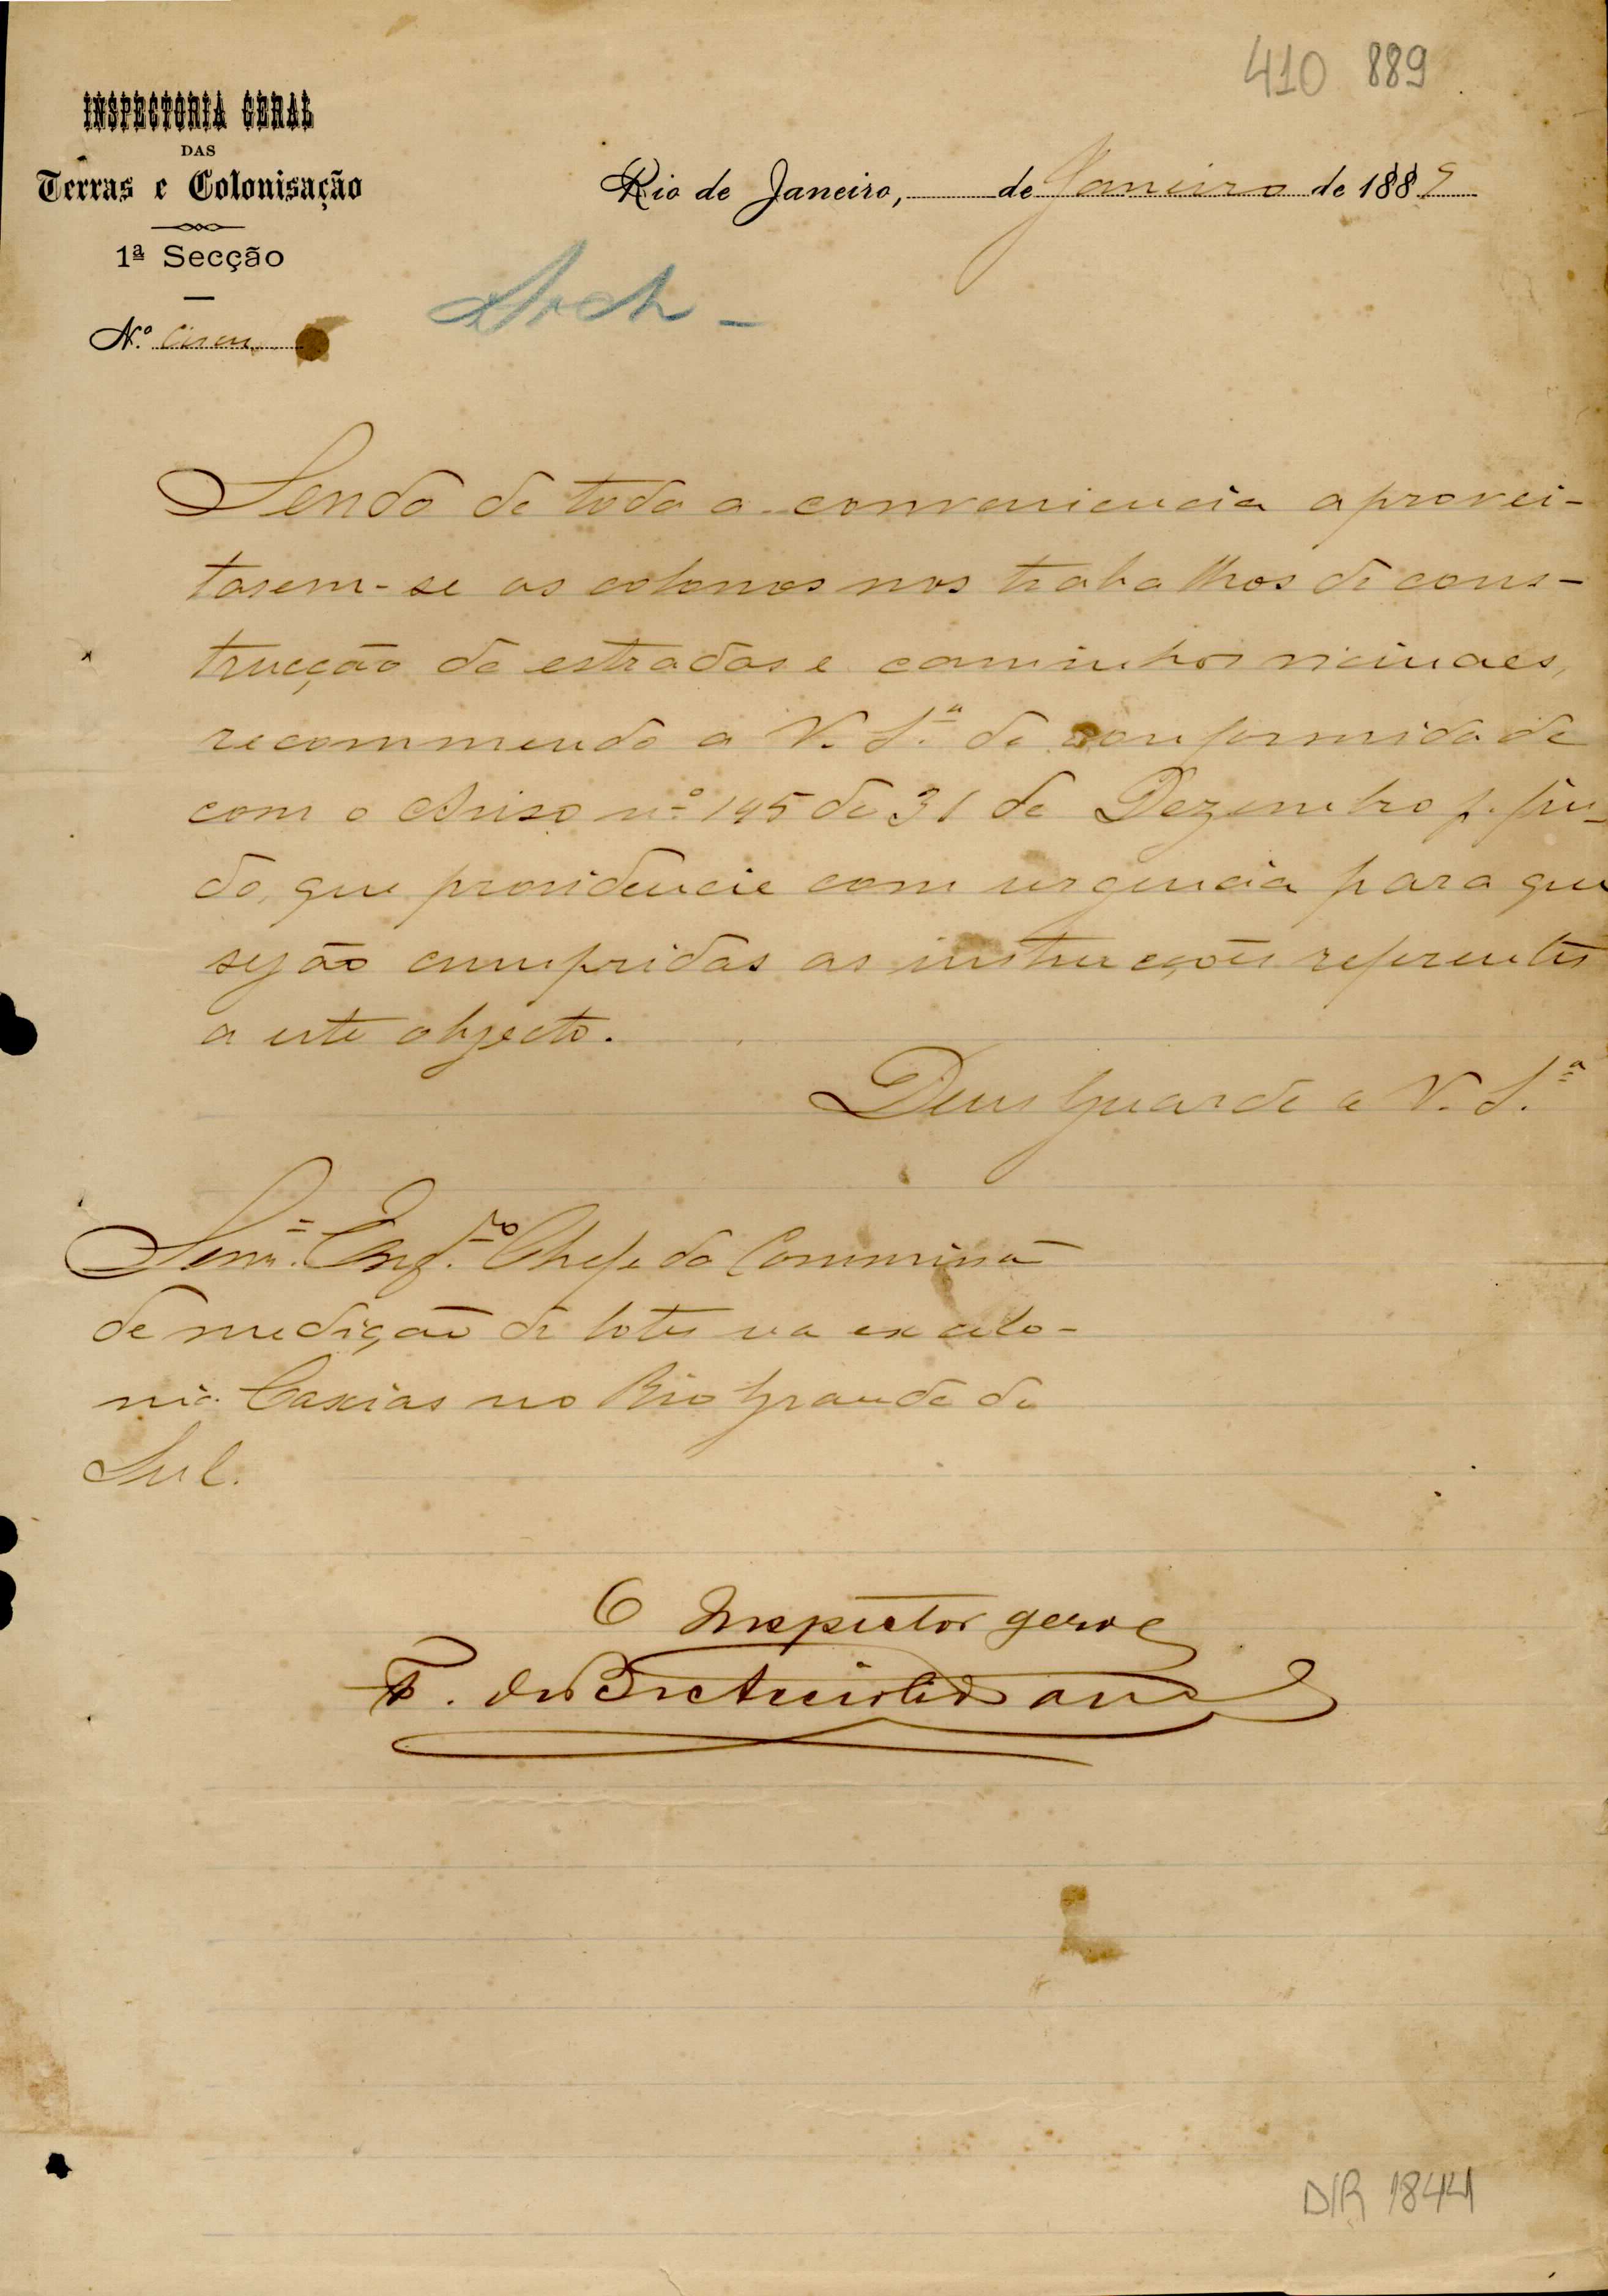 410 889
INSPECTORIA GERAL
DAS
Terras e Colonisação
1ª Secção
Nº Circu
Rio de Janeiro, de Janeiro de 1889
Arch -
Sendo de toda a conveniencia aprovei-
tarem-se os colonos nos trabalhos de cons-
trucção de estradas e caminhos vicinaes,
recommendo a V. S.ª de conformidade
com o Aviso nº 195 de 31 de Dezembro p. fin-
do, que providencie com urgencia para que
sejão cumpridas as instrucções referentes
a este objecto.
Deus Guarde a V. S.ª
Senr. Eng.ro Chefe da Commissão
de medição de lotes na ex colo-
nia Caxias no Rio Grande do
Sul.
O Inspector geral
F. de
DIR 1844